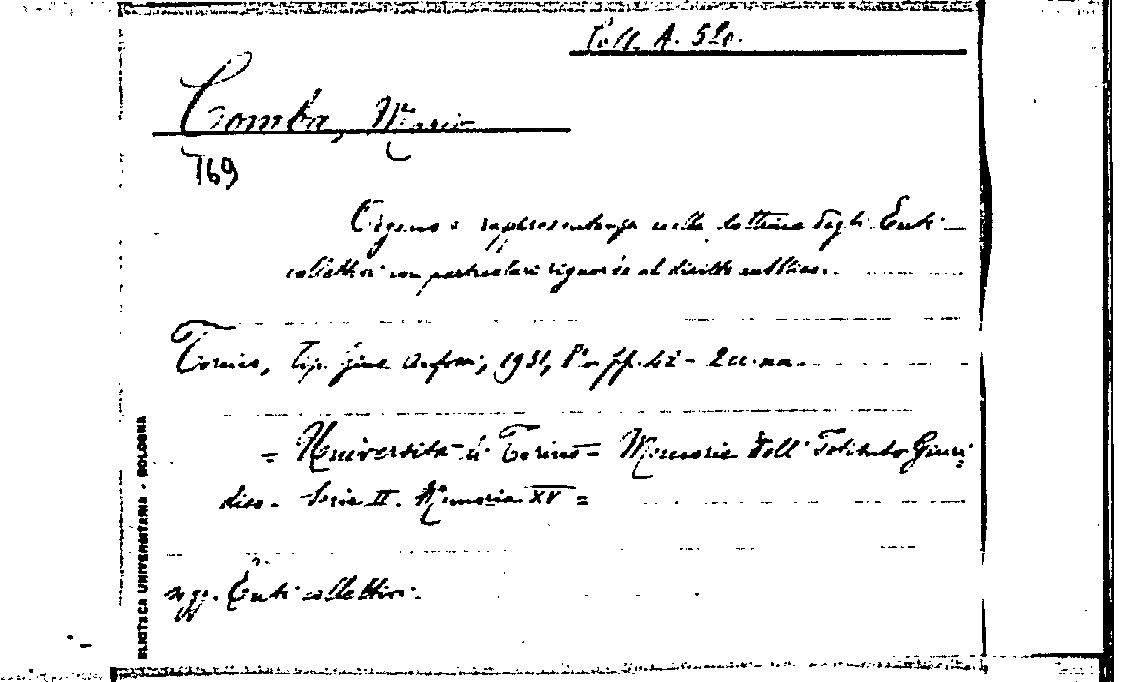 Coll. A. 520.
Comba, Mario
769
Organo e rappresentanza nella dottrina degli Enti
collettivi con particolare riguardo al diritto pubblico.
Torino, Tip. Giuc. Anfossi, 1931, 8° pp. 42 - 2 cc. nn.
= Università di Torino = Memorie dell' Istituto Giuri
dico - Serie II. Memoria XV =
sogg. Enti collettivi.
BLIOTECA UNIVERSITARIA - BOLOGNA